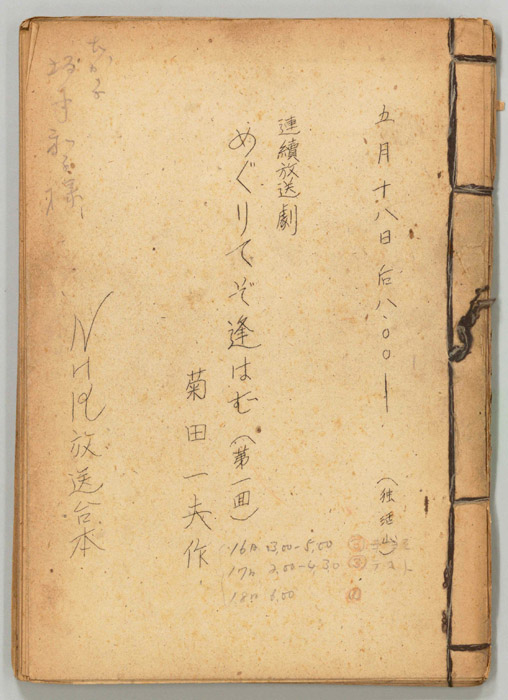 五月十八日 后八.〇〇―
連續放送劇
めぐりてぞ逢はむ（第一回）
菊田一夫作
NHK放送台本
16日 3.00-5.00
17日 2.00-4.30
18日 6.00